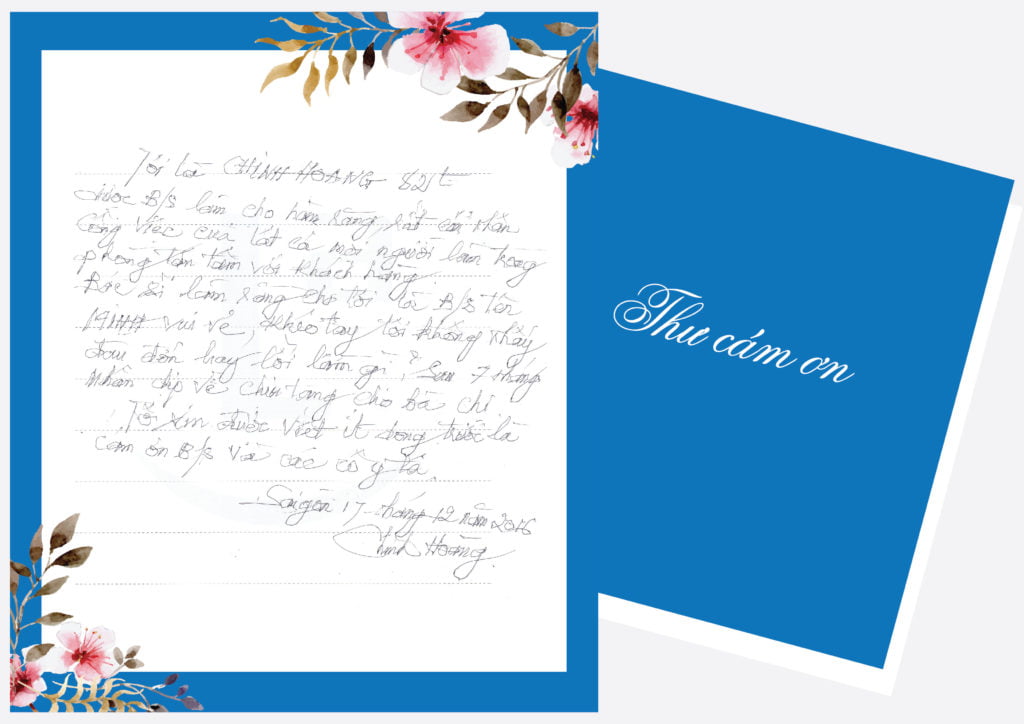 Tôi là CHINH HOANG 82t
được B/S làm cho hàm răng, rất cẩn thận
Công việc của tất cả mọi người làm trong
phòng tận tâm với khách hàng.
Bác sĩ làm răng cho tôi là B/S tên
MINH vui vẻ, khéo tay tôi không thấy
đau đớn hay lỗi lầm gì. Sau 7 tháng
nhân dịp về chịu tang cho bà chị
Tôi xin được viết ít dòng trước là
cảm ơn B/s và các cô y tá.
Saigon 17 tháng 12 năm 2016
Chinh Hoang
Thư cảm ơn